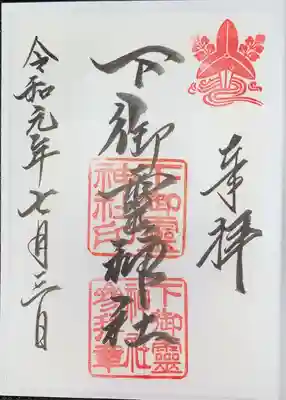 奉拝
下御霊神社
令和元年七月三日
下御靈
神社印
下御靈
神社
参拝章